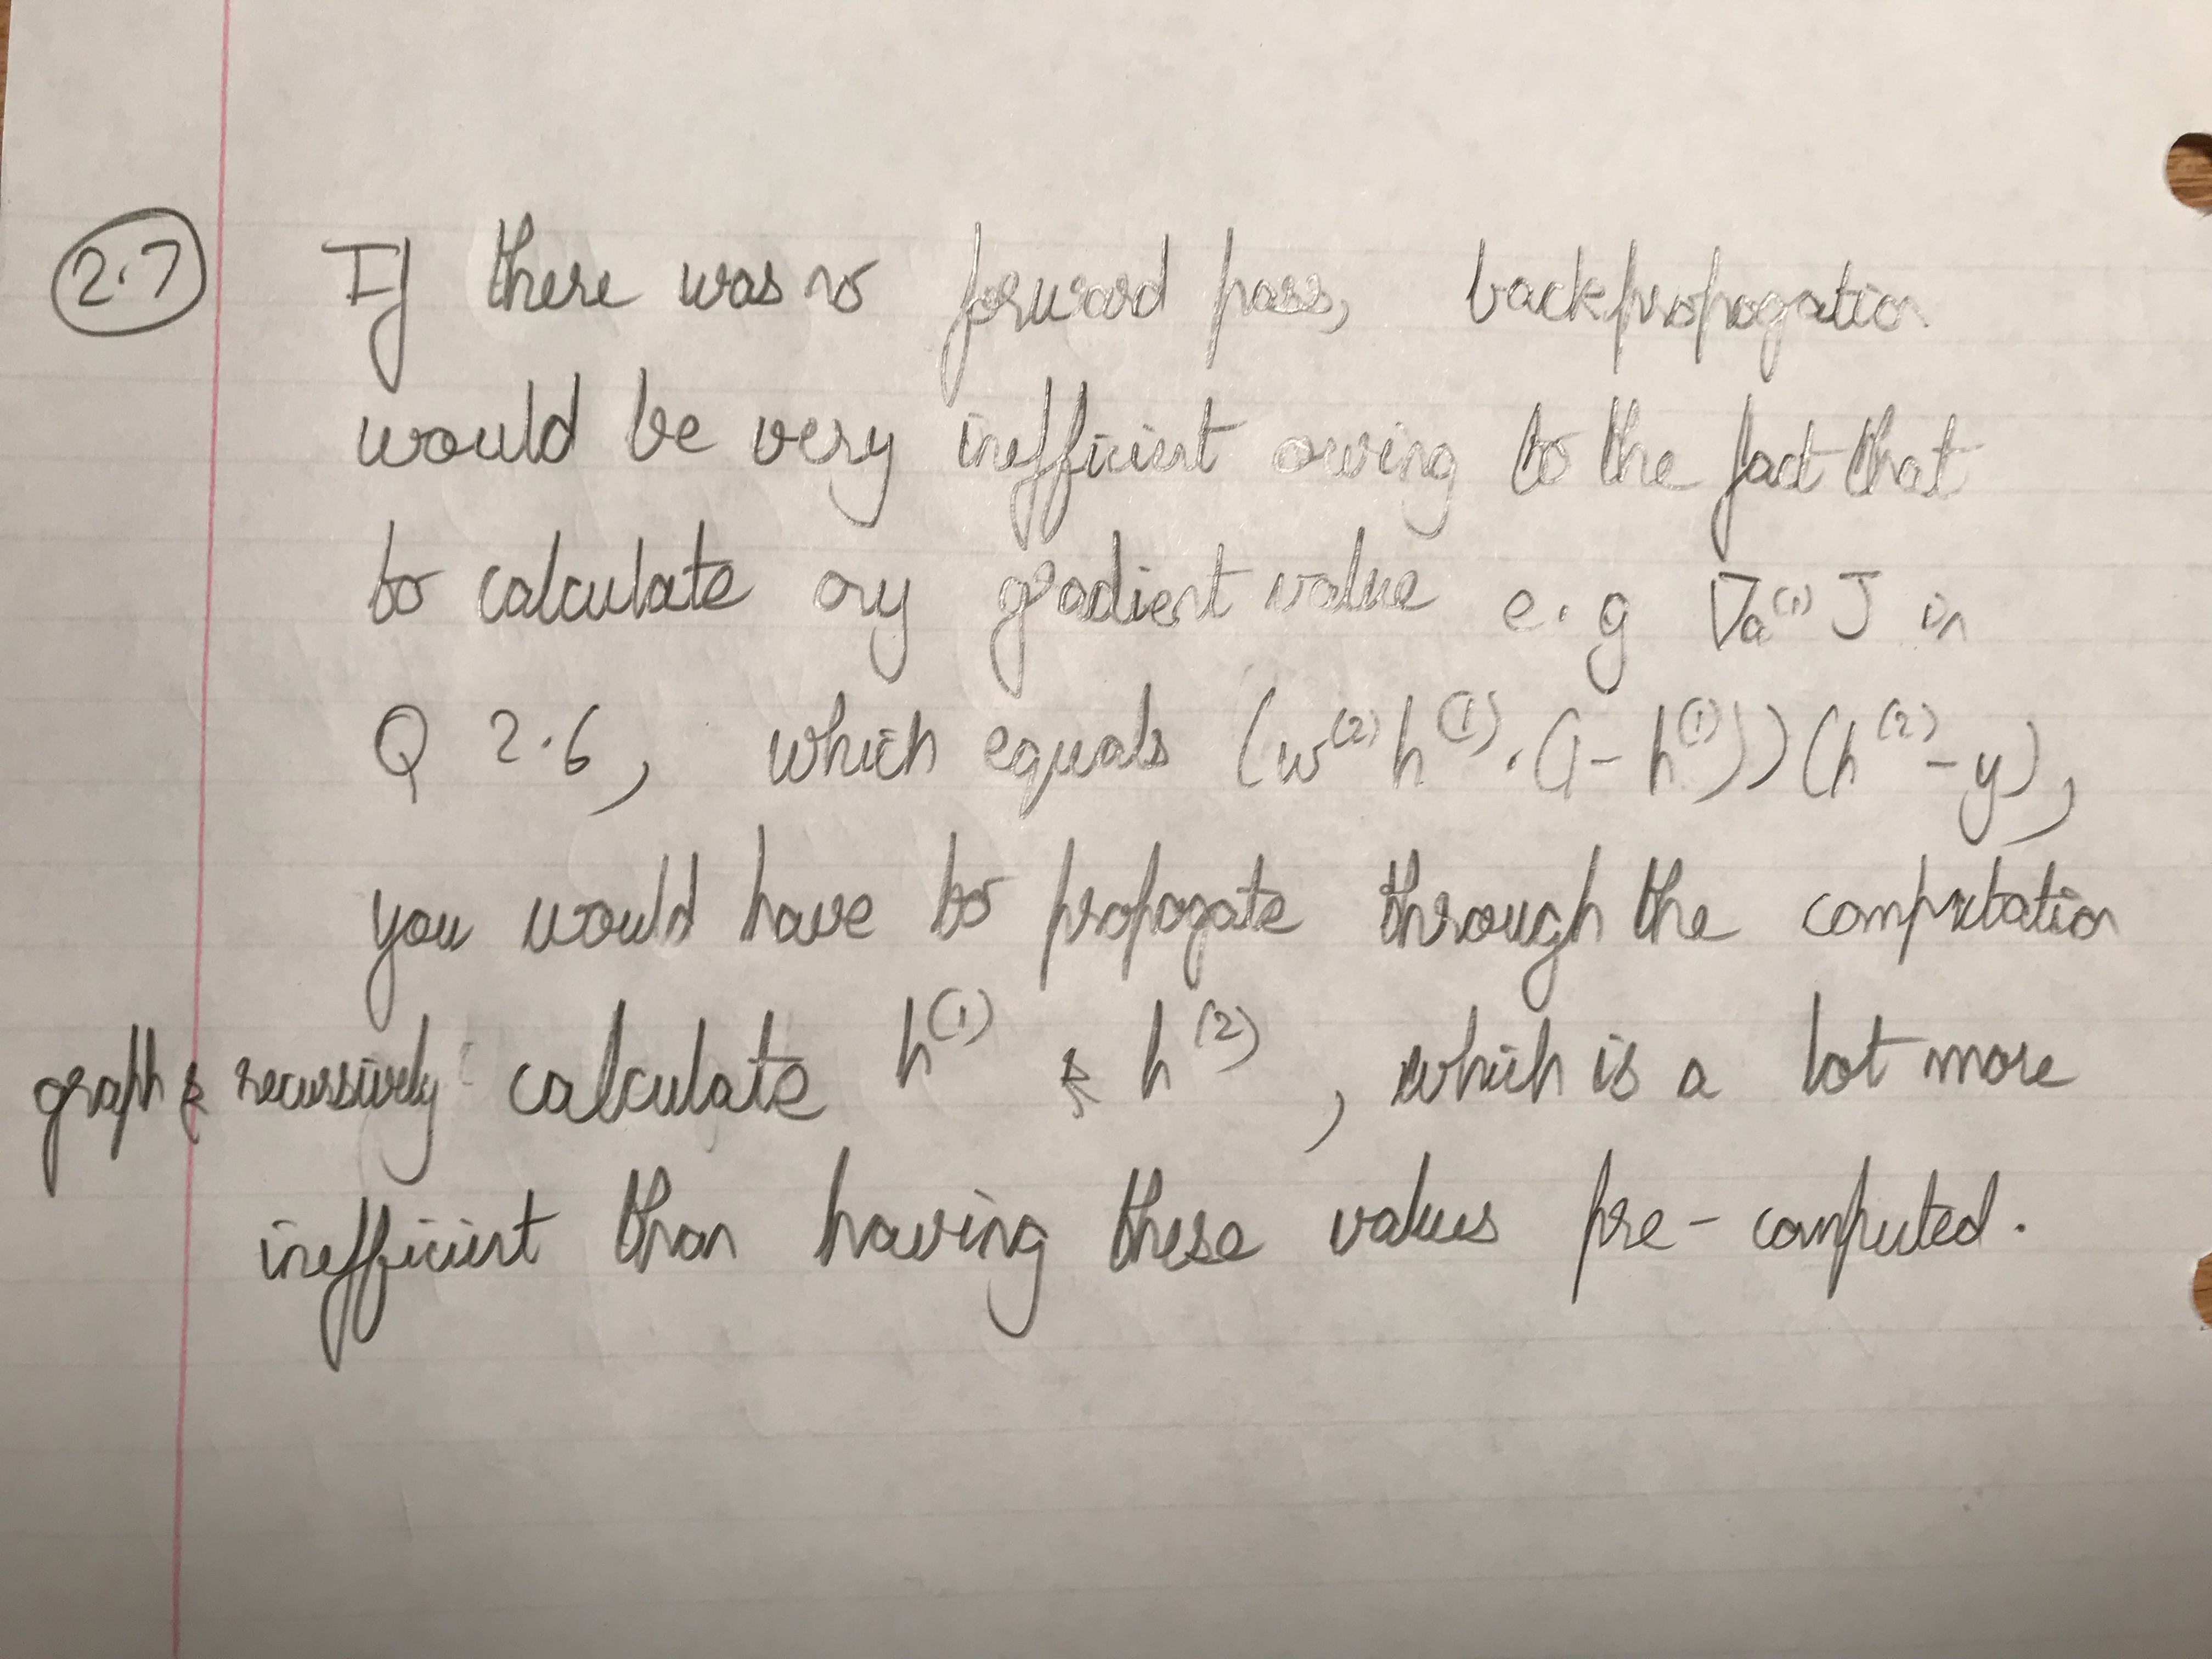 2.7 If there was no forward pass, backpropogation
would be very inefficient owing to the fact that
to calculate any gradient value e.g ∇a⁽¹⁾ J in
Q 2.6, which equals (w⁽²⁾h⁽¹⁾.(1-h⁽¹⁾))(h⁽²⁾-y),
you would have to propogate through the computation
graph & recursively calculate h⁽¹⁾ & h⁽²⁾, which is a lot more
inefficient than having these values pre-computed.